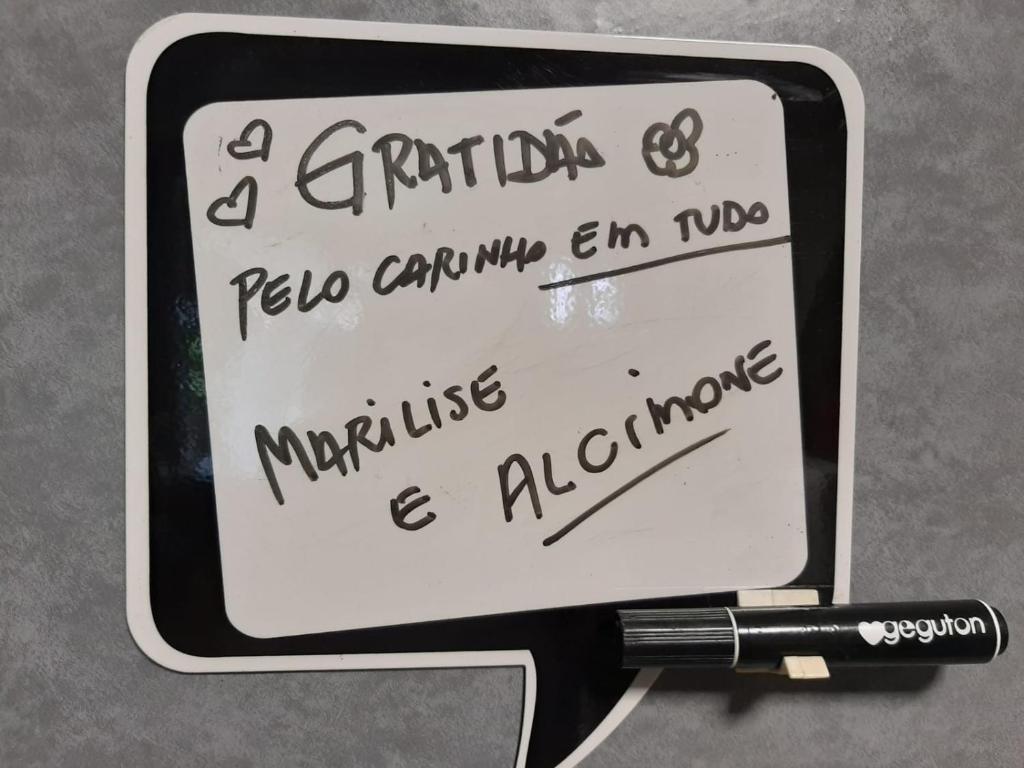 GRATIDÃO
PELO CARINHO EM TUDO
MARILISE
E ALCIMONE
geguton